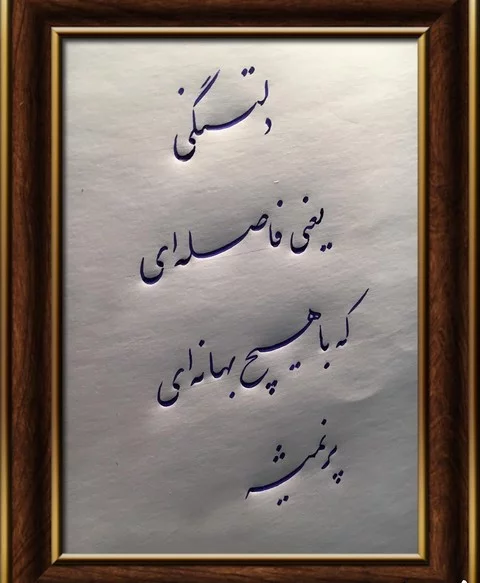 دلتنگی
یعنی فاصله‌ای
که با هیچ بهانه‌ای
پر نمیشه